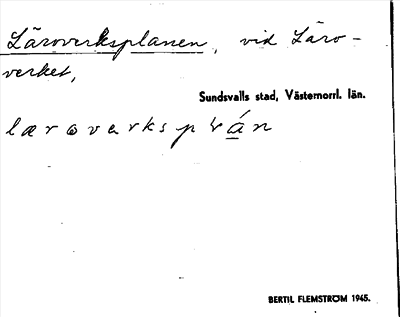 Läroverksplanen, vid Läro-
verket,
Sundsvalls stad, Västernorrl. län.
BERTIL FLEMSTRÖM 1945.